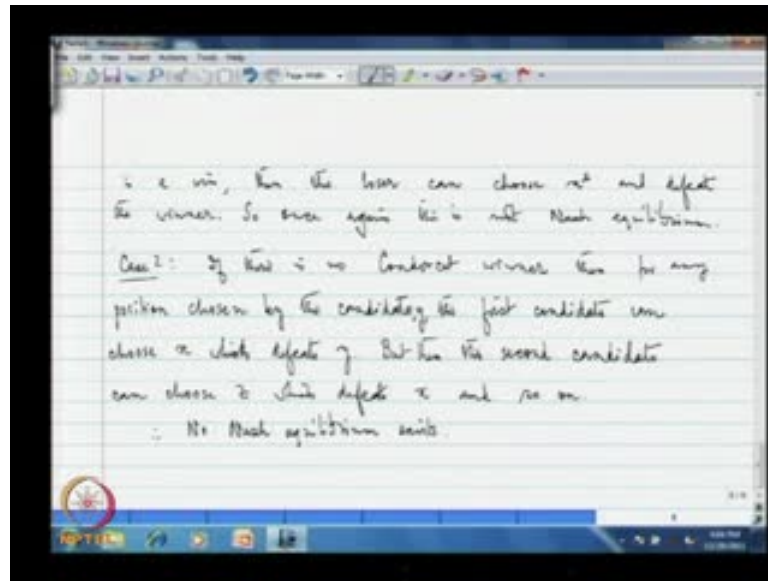 is a win, then the loser can choose x* and defeat
the winner. So once again this is not Nash equilibrium.
Case 2: If there is no Condorcet winner then for any
position chosen by the candidate, y the first candidate can
choose x which defeats y But then the second candidate
can choose z which defeats x and so on.
∴ No Nash equilibrium exists.
NPTEL